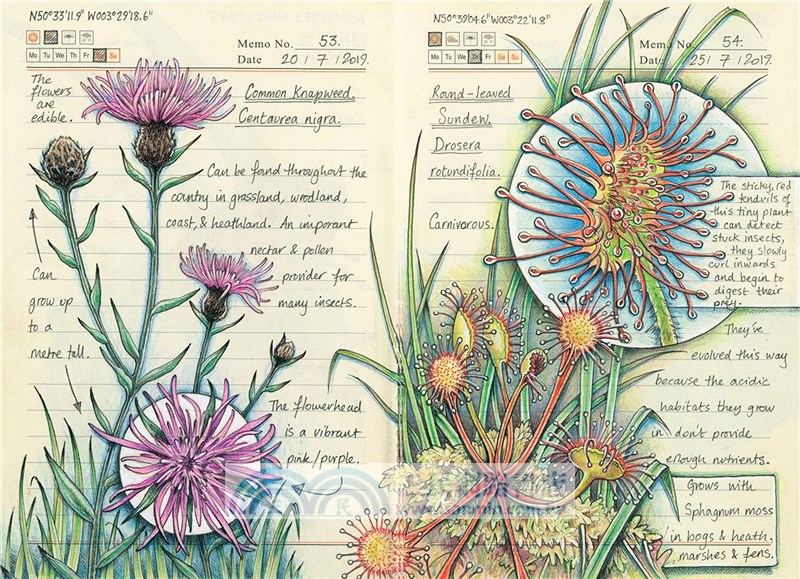 N50°33'11.9" W003°29'18.6"
Mo Tu We Th Fr Sa Su
Memo No. 53.
Date 20 / 7 / 2019.
The
flowers
are
edible.
Common Knapweed.
Centaurea nigra.
Can be found throughout the
country in grassland, woodland,
coast, & heathland. An imporant
nectar & pollen
provider for
many insects.
Can
grow up
to a
metre tall.
The flowerhead
is a vibrant
pink/purple.
N50°39'04.6" W003°22'11.8"
Mo Tu We Th Fr Sa Su
Memo No. 54.
Date 25 / 7 / 2019.
Round-leaved
Sundew.
Drosera
rotundifolia.
Carnivorous.
The sticky, red
tendrils of
this tiny plant
can detect
stuck insects,
they slowly
curl inwards
and begin to
digest their
prey.
They've
evolved this way
because the acidic
habitats they grow
in don't provide
enough nutrients.
Grows with
Sphagnum moss
in bogs & heath,
marshes & fens.
民